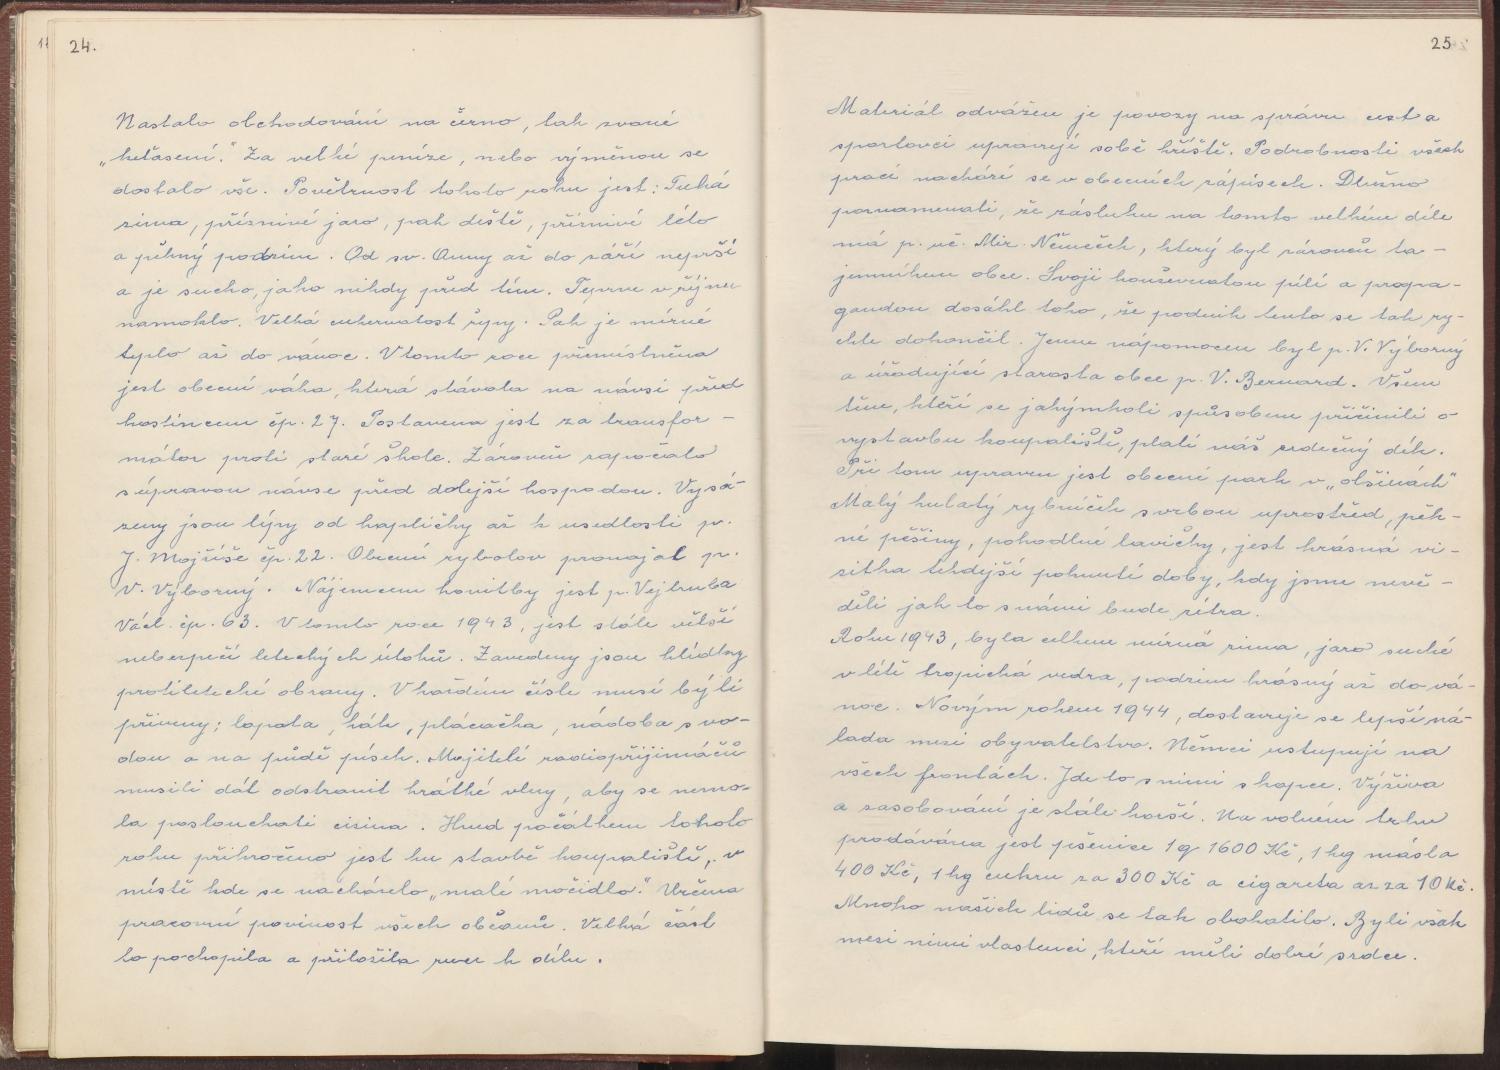 24.
Nastalo obchodování na černo, tak zvané
„keťasení." Za velké peníze, nebo výměnou se
dostalo vše. Povětrnost tohoto roku jest: Tuhá
zima, příznivé jaro, pak deště, příznivé léto
a pěkný podzim. Od sv. Anny až do září neprší
a je sucho, jako nikdy před tím. Teprve v říjnu
namoklo. Velká cukernatost řepy. Pak je mírné
teplo až do vánoc. V tomto roce přemístněna
jest obecní váha, která stávala na návsi před
hostincem čp. 27. Postavena jest za transfor-
mátor proti staré škole. Zároveň započalo
s úpravou návse před dolejší hospodou. Vysá-
zeny jsou lípy od kapličky až k usedlosti p.
J. Mojžíše čp. 22. Obecní rybolov pronajal p.
V. Výborný. Nájemcem honitby jest p. Vejtruba
Václ. čp. 63. V tomto roce 1943, jest stále větší
nebezpečí leteckých útoků. Zavedeny jsou hlídky
protiletecké obrany. V každém čísle musí býti
připraveny; lopata, hák, plácačka, nádoba s vo-
dou a na půdě písek. Majitelé radiopřijimáčů
musili dát odstranit krátké vlny, aby se nemo-
la poslouchati cizina. Hned počátkem tohoto
roku přikročeno jest ku stavbě koupaliště, v
místě kde se nacházelo „malé močidlo." Určena
pracovní povinost všech občanů. Velká část
to pochopila a přiložila ruce k dílu.
25
Materiál odvážen je povozy na správu cest a
sportovci upravují sobě hříště. Podrobnosti všech
prací nachází se v obecních zápisech. Dlužno
poznamenati, že zásluhu na tomto velkém díle
má p. uč. Mir. Němeček, který byl zároveň ta-
jemníkem obce. Svojí houževnatou pílí a propa-
gandou dosáhl toho, že podnik tento se tak ry-
chle dokončil. Jemu nápomocen byl p. V. Výborný
a úřadující starosta obce p. V. Bernard. Všem
těm, kteří se jakýmkoli způsobem přičinili o
vystavbu koupaliště, platí náš srdečný dík.
Při tom upraven jest obecní park v „olšinách"
Malý kulatý rybníček s vrbou uprostřed, pěk-
né pěšiny, pohodlné lavičky, jest krásná vi-
zitka tehdejší pohnuté doby, kdy jsme nevě-
děli jak to s námi bude zítra.
Roku 1943, byla celkem mírná zima, jaro suché
v létě tropická vedra, podzim krásný až do vá-
noc. Novým rokem 1944, dostavuje se lepší ná-
lada mezi obyvatelstvo. Němci ustupují na
všech frontách. Jde to s nimi s kopce. Výživa
a zasobování je stále horší. Na volném trhu
prodávána jest pšenice 1q 1600 Kč, 1 kg másla
400 Kč, 1 kg cukru za 300 Kč a cigareta až za 10 Kč.
Mnoho našich lidů se tak obohatilo. Byli však
mezi nimi vlastenci, kteří měli dobré srdce.